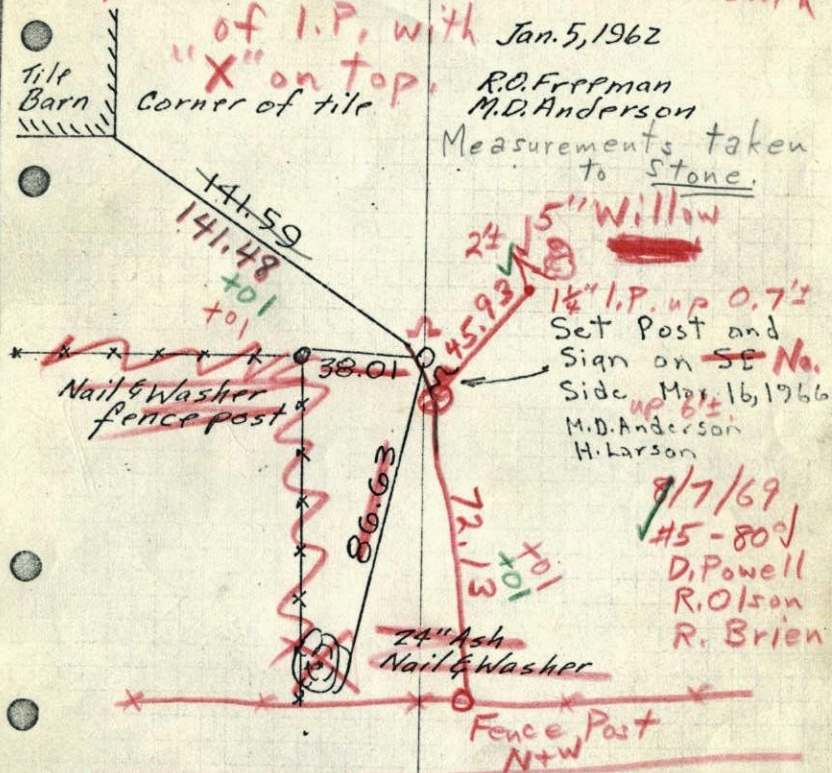 of I.P. with
"X" on top.
Jan. 5, 1962
R.O. Freeman
M.D. Anderson
Tile
Barn
Corner of tile
Measurements taken
to Stone.
141.59
141.48
+01
+01
5" Willow
2'±
45.93
1¼" I.P. up 0.7'±
Set Post and
Sign on SE No.
Side Mar. 16, 1966
up 6'±
M.D. Anderson
H. Larson
38.01
Nail & Washer
fence post
86.63
72.13
+01
+01
8/7/69
#5 - 80°
D. Powell
R. Olson
R. Brien
24" Ash
Nail & Washer
Fence Post
N+W